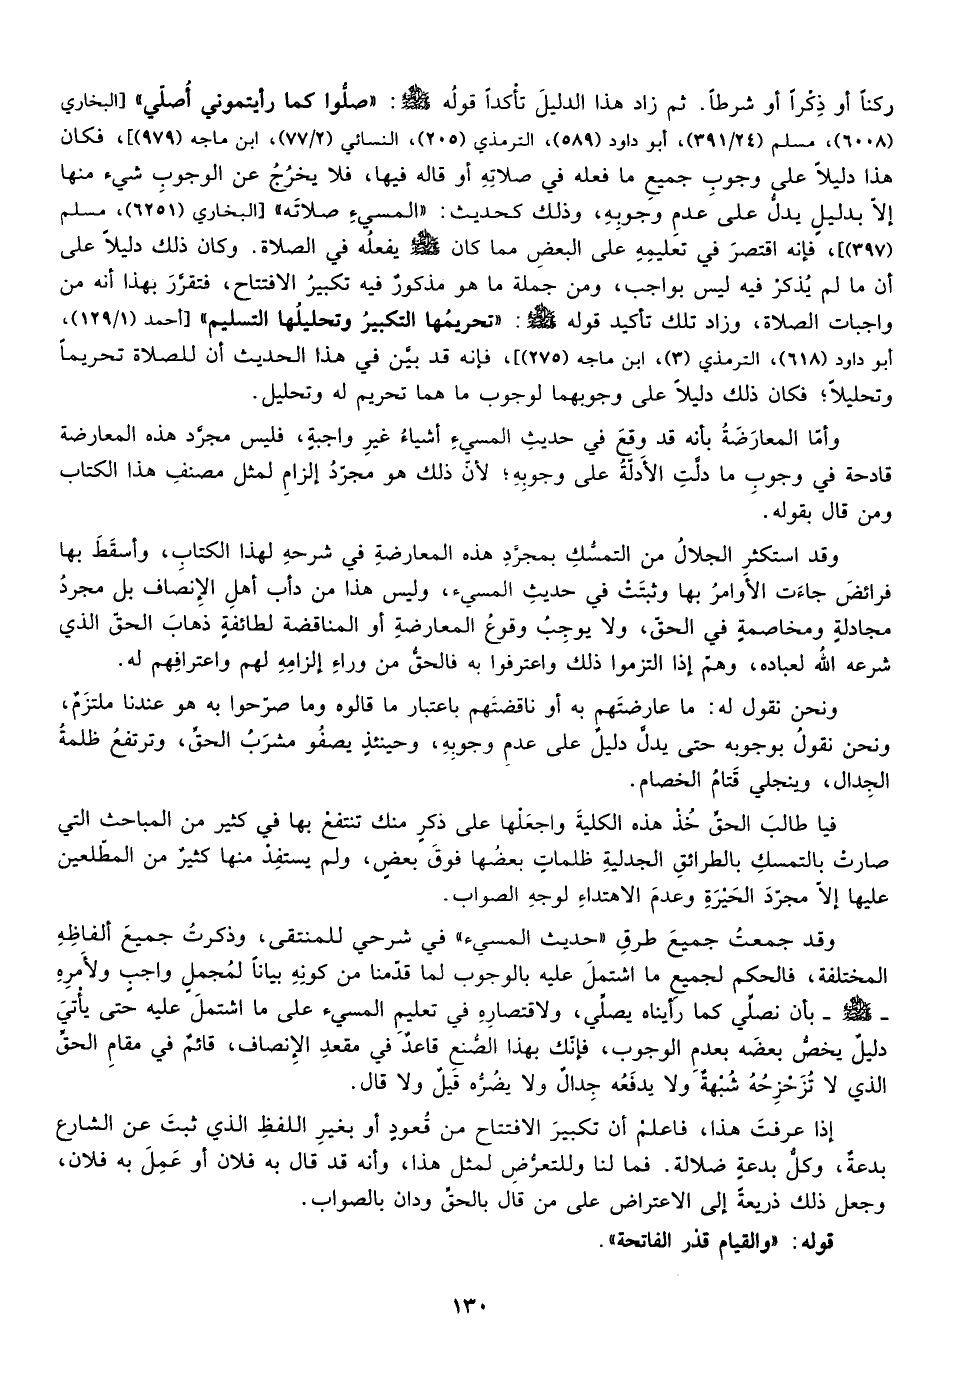 ركناً أو ذِكْراً أو شرطاً. ثم زاد هذا الدليلَ تأكداً قولُه ﷺ: «صلُّوا كما رأيتموني أُصلّي» [البخاري
(٦٠٠٨)، مسلم (٣٩١/٢٤)، أبو داود (٥٨٩)، الترمذي (٢٠٥)، النسائي (٧٧/٢)، ابن ماجه (٩٧٩)]، فكان
هذا دليلاً على وجوبِ جميعِ ما فعله في صلاتِهِ أو قاله فيها، فلا يخرُجُ عن الوجوبِ شيء منها
إلاّ بدليلٍ يدلُّ على عدمِ وجوبِهِ، وذلك كحديث: «المسيءِ صلاتَه» [البخاري (٦٢٥١)، مسلم
(٣٩٧)]، فإنه اقتصرَ في تعليمِهِ على البعضِ مما كان ﷺ يفعلُه في الصلاة. وكان ذلك دليلاً على
أن ما لم يُذكرْ فيه ليس بواجب، ومن جملة ما هو مذكورٌ فيه تكبيرُ الافتتاح، فتقرَّرَ بهذا أنه من
واجبات الصلاة، وزاد تلك تأكيد قوله ﷺ: «تحريمُها التكبيرُ وتحليلُها التسليم» [أحمد (١٢٩/١)،
أبو داود (٦١٨)، الترمذي (٣)، ابن ماجه (٢٧٥)]، فإنه قد بيَّن في هذا الحديث أن للصلاة تحريماً
وتحليلاً؛ فكان ذلك دليلاً على وجوبهما لوجوب ما هما تحريم له وتحليل.
وأمّا المعارَضَةُ بأنه قد وقعَ في حديثِ المسيءِ أشياءُ غيرِ واجبةٍ، فليس مجرَّد هذه المعارضة
قادحة في وجوبِ ما دلَّتِ الأدلَّةُ على وجوبِهِ؛ لأنَ ذلك هو مجرّدُ إلزامِ لمثل مصنفِ هذا الكتاب
ومن قال بقوله.
وقد استكثرِ الجلالُ من التمسُّكِ بمجرَّدِ هذه المعارضةِ في شرحهِ لهذا الكتابِ، وأسقَطَ بها
فرائضَ جاءَت الأوامرُ بها وثبتَتْ في حديثِ المسيء، وليس هذا من دأب أهلِ الإنصاف بل مجردُ
مجادلةٍ ومخاصمةٍ في الحقّ، ولا يوجِبُ وقوعُ المعارضةِ أو المناقضة لطائفةٍ ذهابَ الحقّ الذي
شرعه اللهُ لعباده، وهمّ إذا التزموا ذلك واعترفوا به فالحقُّ من وراءِ إلزامِهِ لهم واعترافِهم له.
ونحن نقول له: ما عارضتَهم به أو ناقضتَهم باعتبار ما قالوه وما صرّحوا به هو عندنا ملتزَمٌ،
ونحن نقولُ بوجوبه حتى يدلَّ دليلٌ على عدمِ وجوبِهِ، وحينئذٍ يصفُو مشرَبُ الحقّ، وترتفعُ ظلمةُ
الجِدال، وينجلي قَتامُ الخصام.
فيا طالبَ الحقِّ خُذْ هذه الكليةَ واجعَلْها على ذكرٍ منك تنتفعْ بها في كثير من المباحث التي
صارتْ بالتمسكِ بالطرائقِ الجدليةِ ظلماتٍ بعضُها فوقَ بعضٍ، ولم يستفِدْ منها كثيرٌ من المطّلعين
عليها إلاّ مجرّدَ الحَيْرَةِ وعدمَ الاهتداءِ لوجهِ الصواب.
وقد جمعتُ جميعَ طرقِ «حديث المسيء» في شرحي للمنتقى، وذكرتُ جميعَ ألفاظِهِ
المختلفة، فالحكم لجميعِ ما اشتملَ عليه بالوجوب لما قدّمنا من كونِهِ بياناً لمُجملٍ واجبٍ ولأمرِهِ
ـ ﷺ ـ بأن نصلّي كما رأيناه يصلّي، ولاقتصارِهِ في تعليمِ المسيء على ما اشتملَ عليه حتى يأتيَ
دليلٌ يخصُّ بعضَه بعدمِ الوجوب، فإنّك بهذا الصُّنع قاعدٌ في مقعدِ الإنصاف، قائمٌ في مقامِ الحقِّ
الذي لا تُزَحْزِحُهُ شُبْهةٌ ولا يدفَعُه جِدالٌ ولا يضُرُّه قيلٌ ولا قال.
إذا عرفتَ هذا، فاعلمْ أن تكبيرَ الافتتاح من قُعودٍ أو بغيرِ اللفظِ الذي ثبتَ عن الشارع
بدعةٌ، وكلُّ بدعةٍ ضلالة. فما لنا وللتعرُّضِ لمثل هذا، وأنه قد قال به فلان أو عَمِلَ به فلان،
وجعل ذلك ذريعةً إلى الاعتراض على من قال بالحقِّ ودان بالصواب.
قوله: «والقيام قدْر الفاتحة».
١٣٠